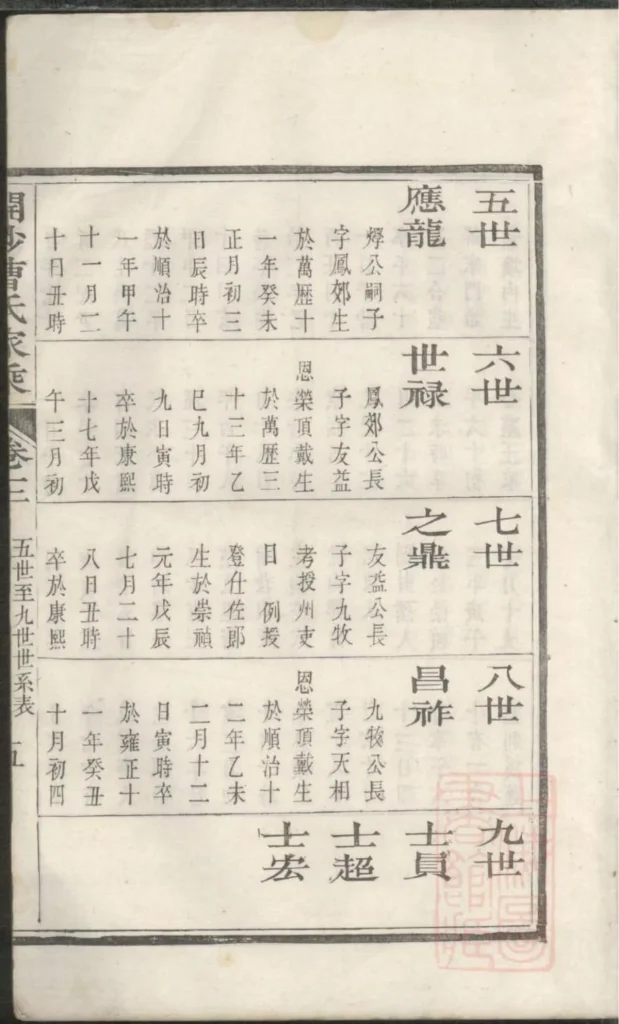 五世
應龍
公嗣子
字鳳郊生
於萬歷十
一年癸未
正月初三
日辰時卒
於順治十
一年甲午
十一月二
十日丑時
六世
世祿
鳳郊公長
子字友益
恩榮頂戴生
於萬歷三
十三年乙
巳九月初
九日寅時
卒於康熙
十七年戊
午三月初
七世
之鼎
友益公長
子字九牧
考授州吏
目 例授
登仕佐郎
生於崇禎
元年戊辰
七月二十
八日丑時
卒於康熙
八世
昌祚
九牧公長
子字天相
恩榮頂戴生
於順治十
二年乙未
二月十二
日寅時卒
於雍正十
一年癸丑
十月初四
九世
士員
士超
士宏
開沙曹氏家乘
五世至九世世系表
五